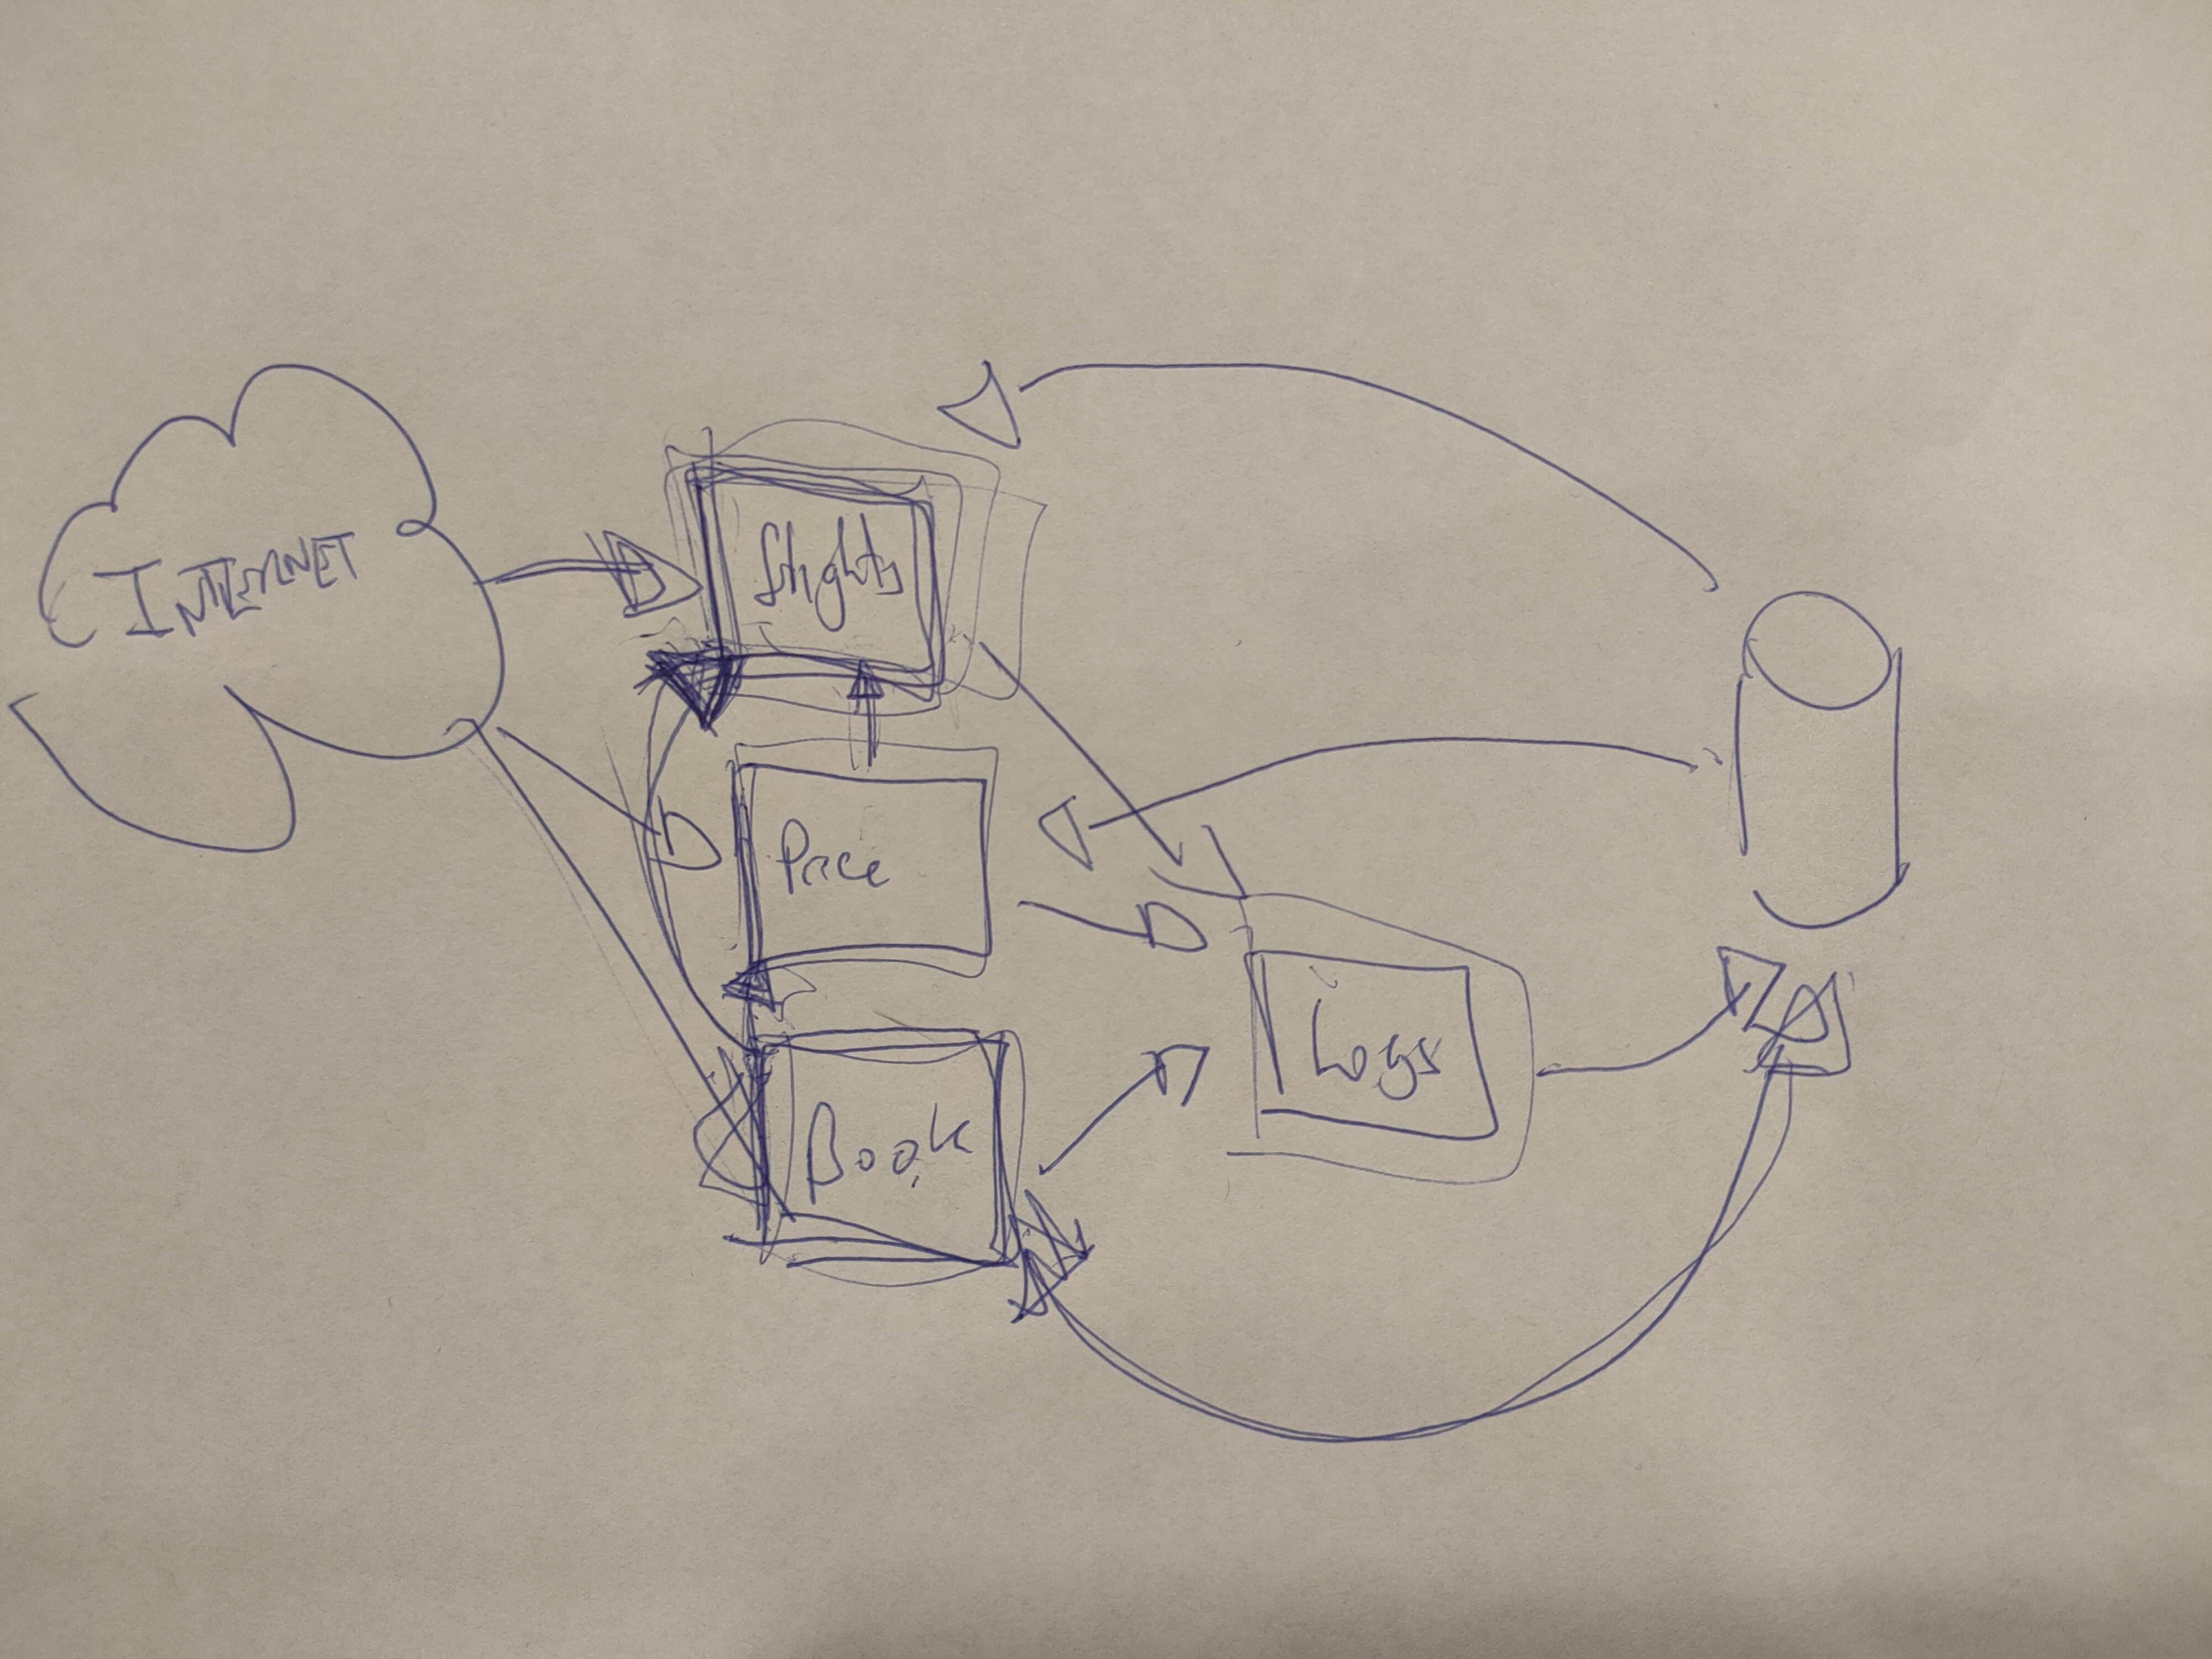 INTERNET
flights
Price
Book
Logs